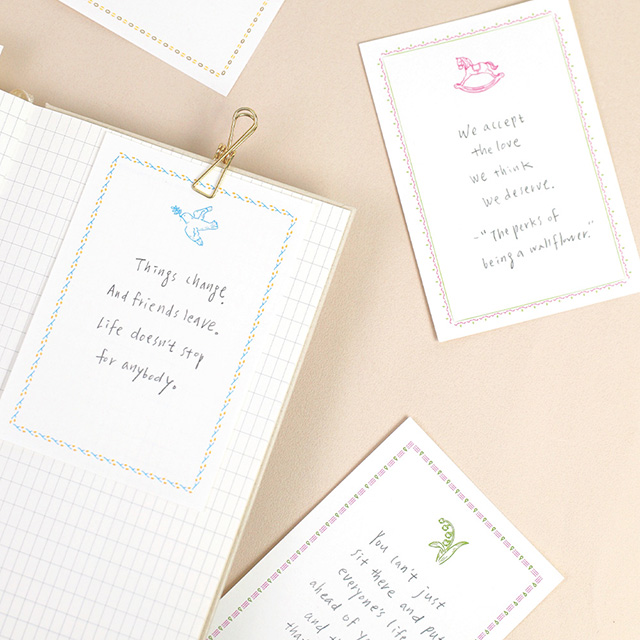 Things change.
And friends leave.
Life doesn't stop
for anybody.
We accept
the love
we think
we deserve.
-"The perks of
being a wallflower."
You can't just
sit there and put
everyone's life
ahead of
and